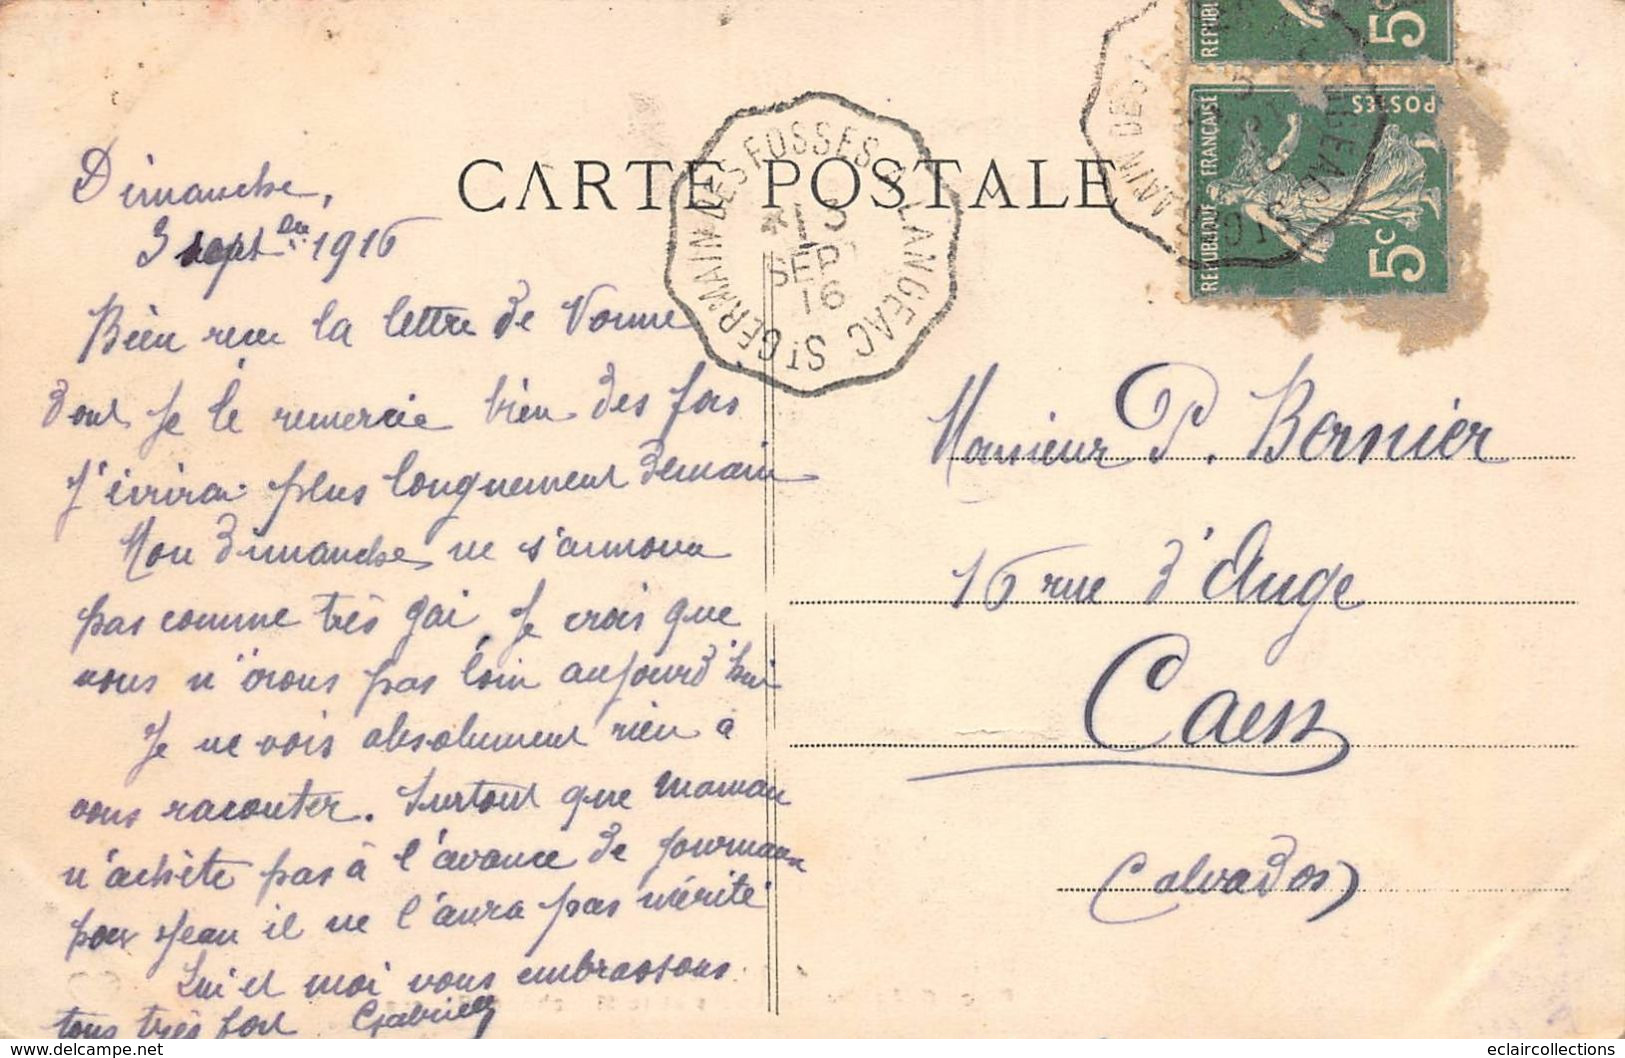 CARTE POSTALE
ST GERMAIN DES FOSSES A LANGEAC
*13
SEPT
16
REPUBLIQUE FRANÇAISE
POSTES
5c
5c
Dimanche,
3 sept bre 1916
Bien reçu la lettre de Vonne
dont je le remercie bien des fois
J'écrirai plus longuement demain
Mon dimanche ne s'annonce
pas comme très gai, je crois que
nous n'irons pas loin aujourd'hui
Je ne vois absolument rien à
vous raconter. Surtout que maman
n'achète pas à l'avance de journaux
pour Jean il ne l'aura pas mérité
Lui et moi vous embrassons
tous très fort Gabrielle
Monsieur P. Bernier
16 rue d'Auge
Caen
Calvados
delcampe.net
eclaircollections